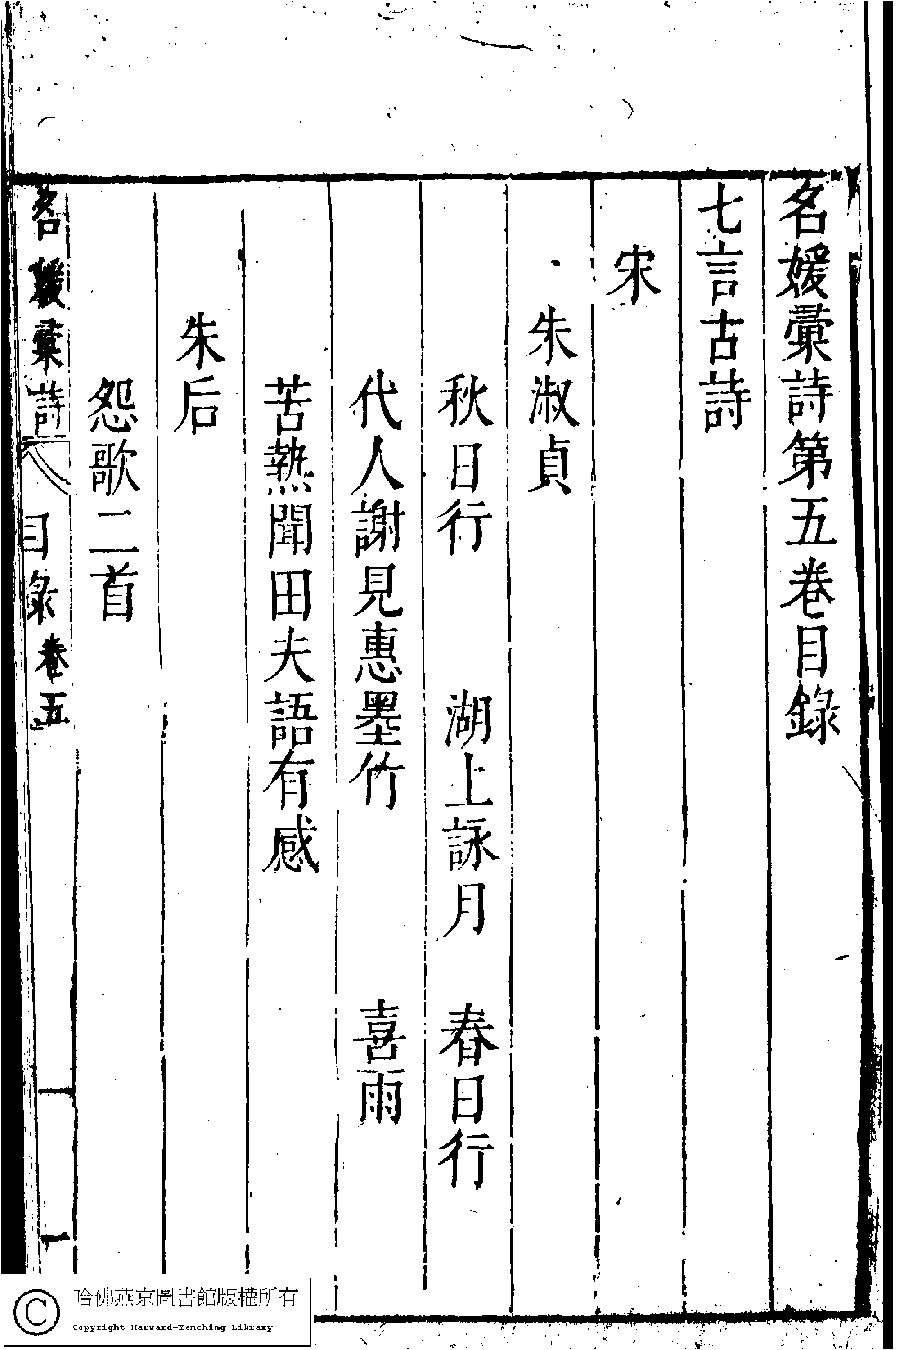 名媛彚詩第五卷目錄
七言古詩
宋
朱淑貞
秋日行　湖上詠月　春日行
代人謝見惠墨竹　喜雨
苦熱聞田夫語有感
朱后
怨歌二首
名媛彚詩　目錄卷五　一
哈佛燕京圖書館版權所有
Copyright Harvard-Yenching Library